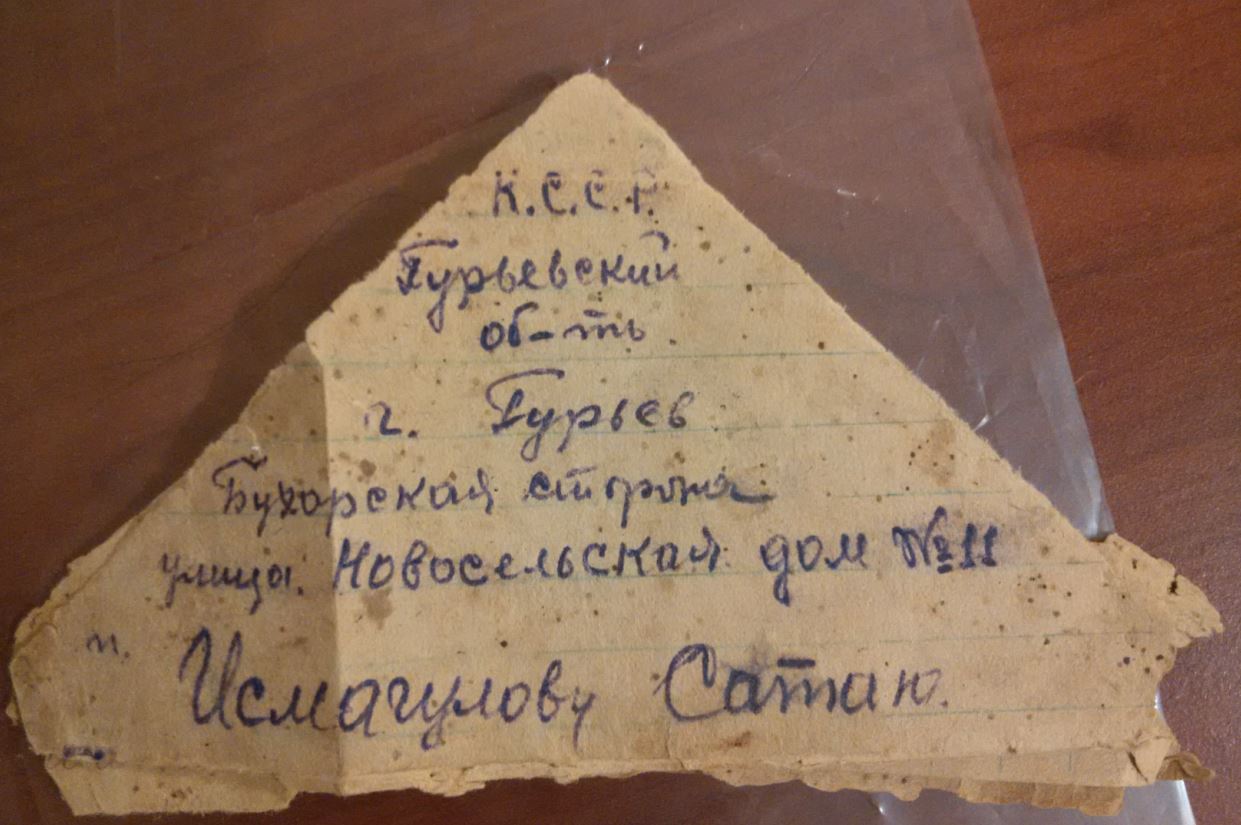 К.С.С.Р.
Гурьевский
об-ть
г. Гурьев
Бухорская сторона
улица. Новосельская дом №11
п. Исмагулову Сатаю.